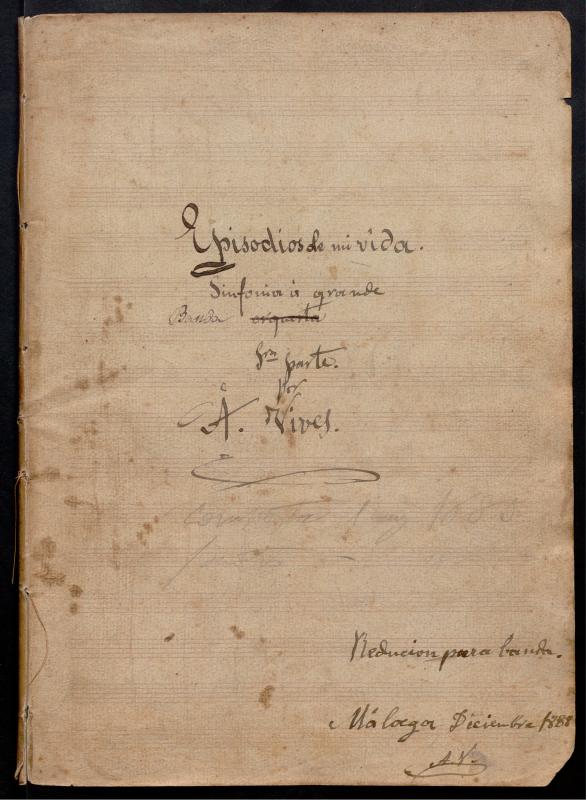 Episodios de mi vida.
Sinfonia á grande
Banda orquesta
1ra parte.
por
A. Vives.
Reducion para banda.
Málaga Diciembre 1888
A. V.